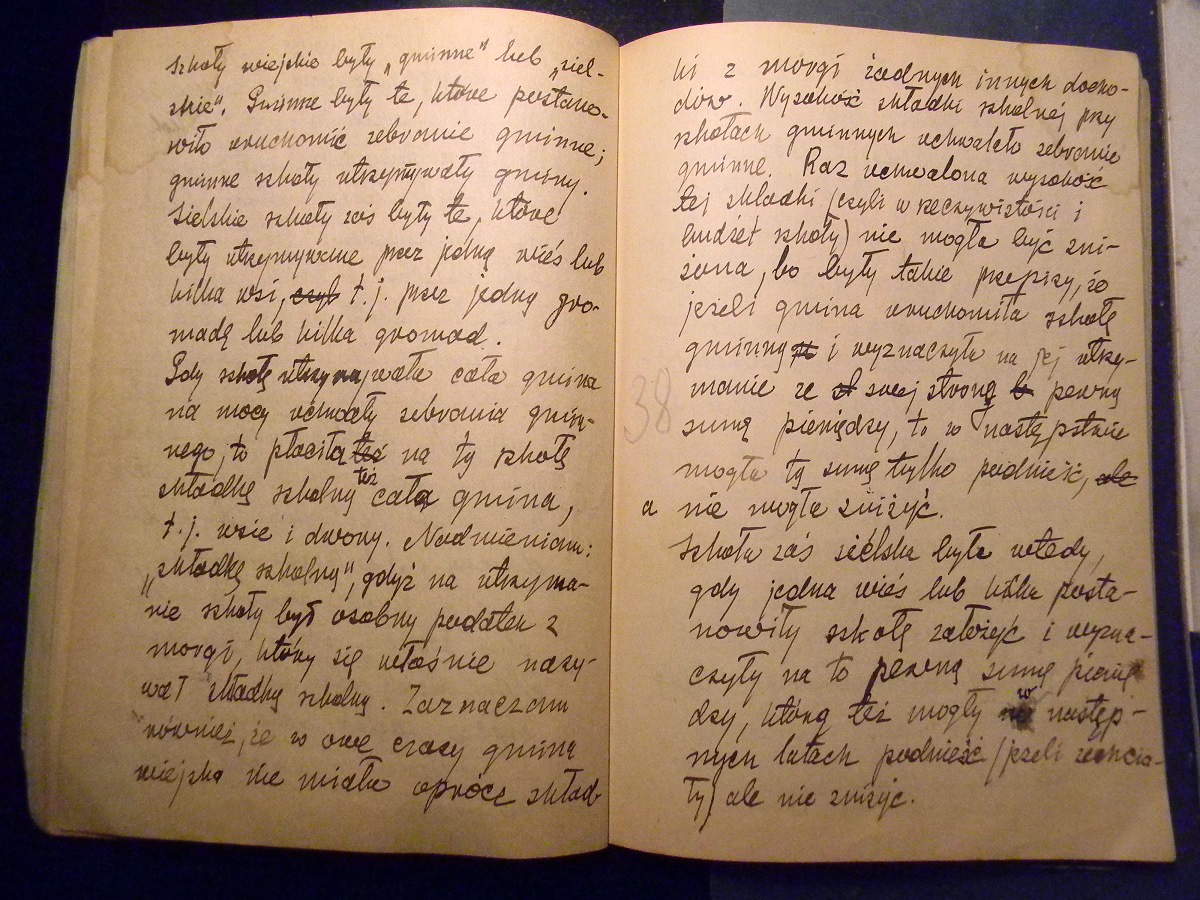 Szkoły wiejskie były „gminne" lub „siel-
skie". Gminne były te, które postano-
wiło uruchomić zebranie gminne;
gminne szkoły utrzymywały gminy.
Sielskie szkoły zaś były te, które
były utrzymywane przez jedną wieś lub
kilka wsi, czyli t.j. przez jedną gro-
madę lub kilka gromad.
Gdy szkołę utrzymywała cała gmina
na mocy uchwały zebrania gmin-
nego, to płaciła też na tę szkołę
składkę szkolną też cała gmina,
t.j. wsie i dwory. Nadmieniam:
„składkę szkolną", gdyż na utrzyma-
nie szkoły był osobny podatek z
morgi, który się właśnie nazy-
wał składką szkolną. Zaznaczam
również, że w owe czasy gmina
wiejska nie miała oprócz skład-
ki z morgi żadnych innych docho-
dów. Wysokość składki szkolnej przy
szkołach gminnych uchwalało zebranie
gminne. Raz uchwalona wysokość
tej składki (czyli w rzeczywistości i
budżet szkoły) nie mogła być zni-
żona, bo były takie przepisy, że
jeżeli gmina uruchomiła szkołę
gminną i wyznaczyła na jej utrzy-
manie ze swej strony pewną
38
sumę pieniędzy, to w następstwie
mogła tę sumę tylko podnieść, ale
a nie mogła zniżyć.
Szkoła zaś sielska była wtedy,
gdy jedna wieś lub kilka posta-
nowiły szkołę założyć i wyzna-
czyły na to pewną sumę pienię-
dzy, którą też mogły w następ-
nych latach podnieść (jeżeli zechcia-
ły) ale nie zniżyć.